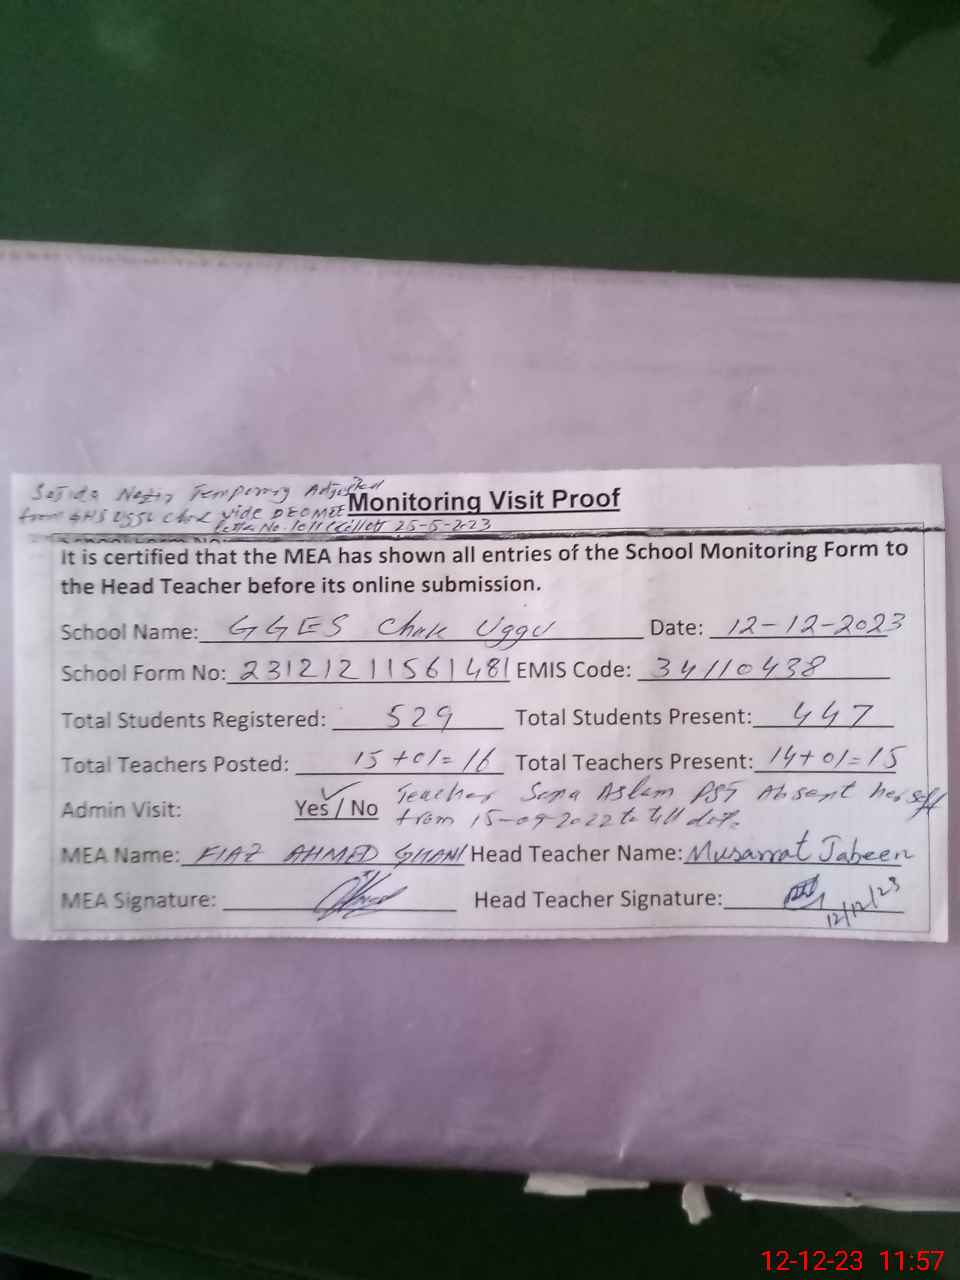 Sajida Nazir Temporary Adjusted
from GHS Uggu Chak vide DEOMEE
Letter No. 25-5-2023
Monitoring Visit Proof
It is certified that the MEA has shown all entries of the School Monitoring Form to
the Head Teacher before its online submission.
School Name: GGES Chak Uggu Date: 12-12-2023
School Form No: 23121211561481 EMIS Code: 34110438
Total Students Registered: 529 Total Students Present: 447
Total Teachers Posted: 15+01=16 Total Teachers Present: 14+01=15
Admin Visit: Yes / No Teacher Sana Aslam PST Absent her self
from 15-09-2022 to till date.
MEA Name: FIAZ AHMED GHANI Head Teacher Name: Musarrat Jabeen
MEA Signature: Head Teacher Signature:
12/12/23
12-12-23 11:57